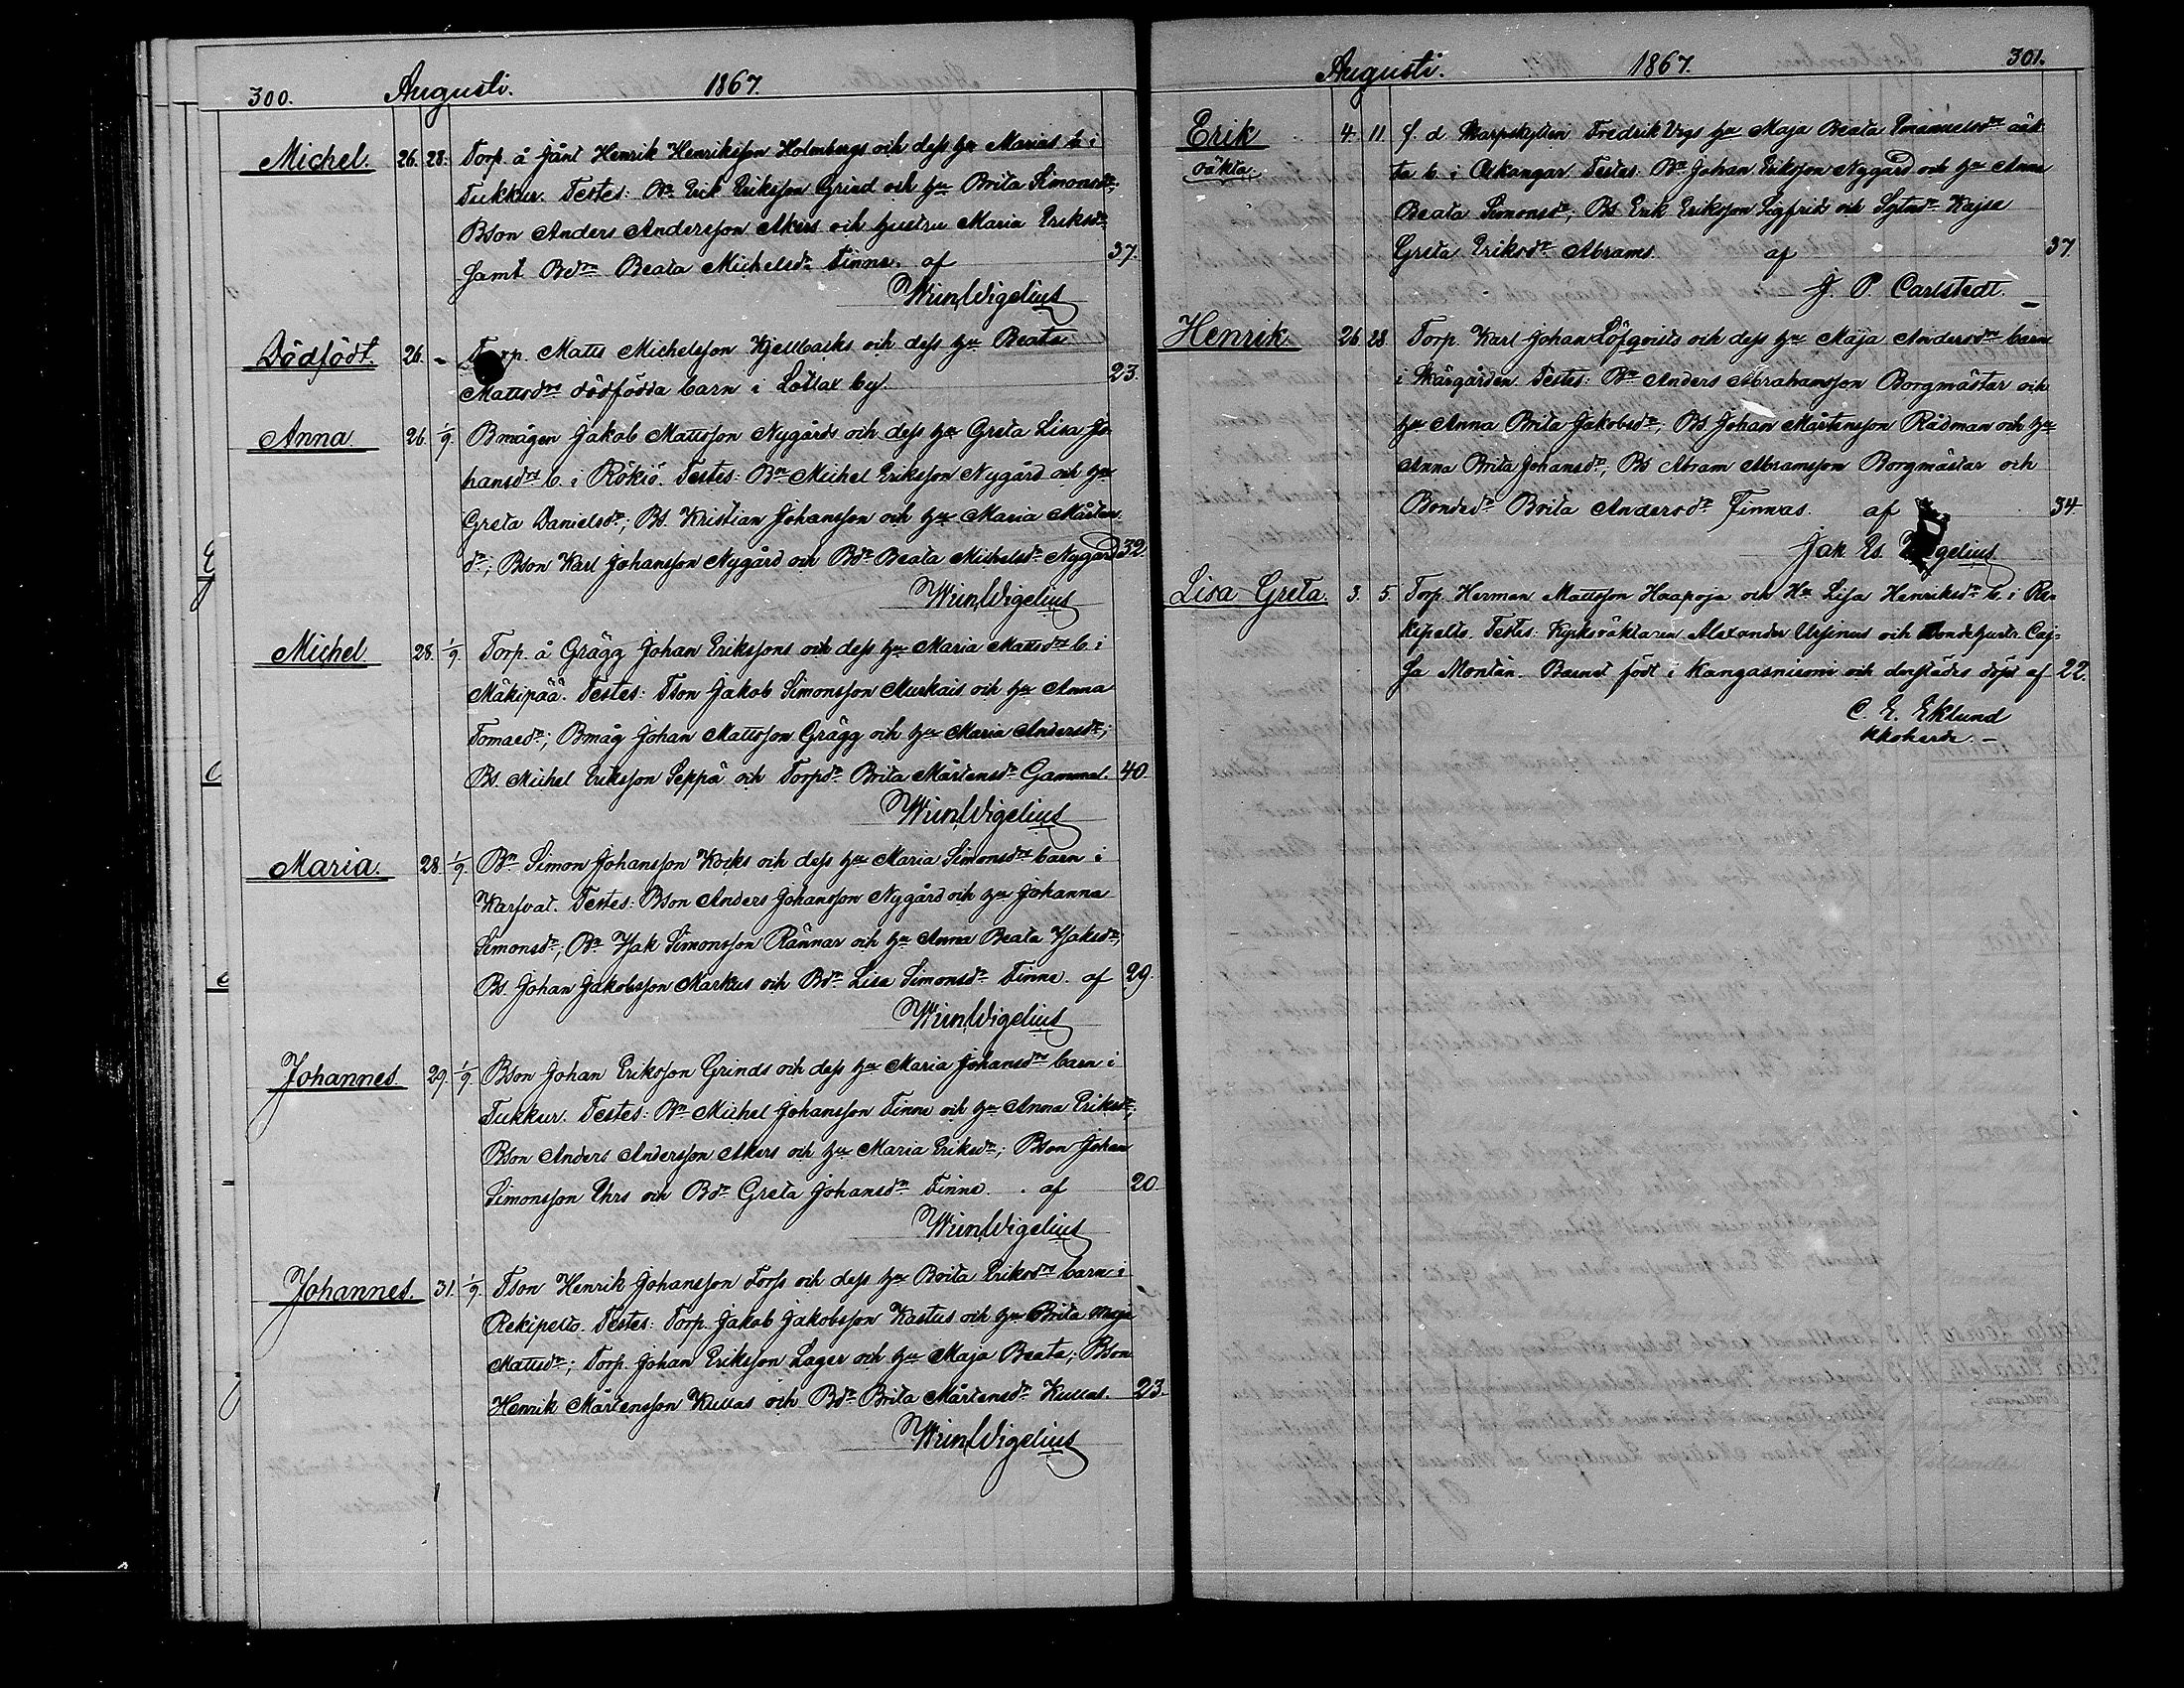 300. Augusti. 1867.
Michel. 26. 28. Torp. å Jänt Henrik Henriksson Holmbergs och dess hu Marias b. i
Tukkur. Testes: Bn Erik Eriksson Grind och hu Brita Simonsdr;
Bson Anders Andersson Akers och hustru Maria Eriksdr
samt Bdn Beata Michelsdr Finne. af 37.
Wm Wigelius
Dödfödt. 26. - Torp. Matts Michelsson Kjellbacks och dess hu Beata
Mattsdrs dödfödda barn i Lotlax by. 23.
Anna 26. 1/9. Bmågen Jakob Mattsson Nygårds och dess hu Greta Lisa Jo
hansdrs b. i Rökiö. Testes: Bn Michel Eriksson Nygård och hu
Greta Danielsdr; Bs. Kristian Johansson och hu Maria Mårtens
dr; Bson Karl Johansson Nygård och Bdr Beata Michelsdr Nygård 32.
Wm Wigelius
Michel 28. 1/9. Torp. å Grägg Johan Erikssons och dess hu Maria Mattsdrs b. i
Mäkipää. Testes: Tson Jakob Simonsson Murkais och hu Anna
Tomasdr; Bmåg Johan Mattsson Grägg och hu Maria Andersdr;
Bs. Michel Eriksson Seppä och Torpdr Brita Mårtensdr Gammal. 40.
Wm Wigelius
Maria. 28. 1/9. Bn Simon Johansson Kocks och dess hu Maria Simonsdrs barn i
Karfvat. Testes: Bson Anders Johansson Nygård och hu Johanna
Simonsdr; Bn Isak Simonsson Rännar och hu Anna Beata Isaksdr;
Bs. Johan Jakobsson Markus och Bdr Lisa Simonsdr Finne. af 29.
Wm Wigelius
Johannes. 29. 1/9. Bson Johan Eriksson Grinds och dess hu Maria Johansdrs barn i
Tukkur. Testes: Bn Michel Johansson Finne och hu Anna Eriksdr;
Bson Anders Andersson Akers och hu Maria Eriksdr; Bson Johan
Simonsson Uhrs och Bdr Greta Johansdr Finne. af 20.
Wm Wigelius
Johannes. 31. 1/9. Tson Henrik Johansson Forss och dess hu Brita Eriksdrs barn i
Rekipelto. Testes: Torp. Jakob Jakobsson Kastus och hu Brita Maja
Mattsdr; Torp. Johan Eriksson Lager och hu Maja Beata; Bson
Henrik Mårtensson Kullas och Bdr Brita Mårtensdr Kullas. 23.
Wm Wigelius
Augusti. 1867. 301.
Erik 4. 11. f. d. Skarpskytten Fredrik hu Maja Beata Emanuelsdrs oäk
oäkta. ta b. i Oskangar. Testes: Bn Johan Eriksson Nygård och hu Anna
Beata Simonsdr; Bs. Erik Eriksson Sigfrids och Kajsa
Greta Eriksdr Abrams. af 37.
J. P. Carlstedt.
Henrik. 26. 28. Torp. Karl Johan Löfqvists och dess hu Maja Andersdrs barn
i Skärgården. Testes: Bn Anders Abrahamsson Borgmästar och
hu Anna Brita Jakobsdr; Bs. Johan Mårtensson Rådman och hu
Anna Brita Johansdr; Bs Abram Abramsson Borgmästar och
Bondedr Brita Andersdr Finnas. af 34.
Jak Es. Wigelius
Lisa Greta. 3. 5. Torp. Herman Mattsson Haapoja och Hu Lisa Henriksdrs b. i Re-
kipelto. Testes: Kyrkväktaren Alexander Ursinus och Bondehustr. Caj-
sa Montin. Barnet födt i Kangasniemi och derstädes döpt af 22.
C. E. Eklund
Kkoherde. -